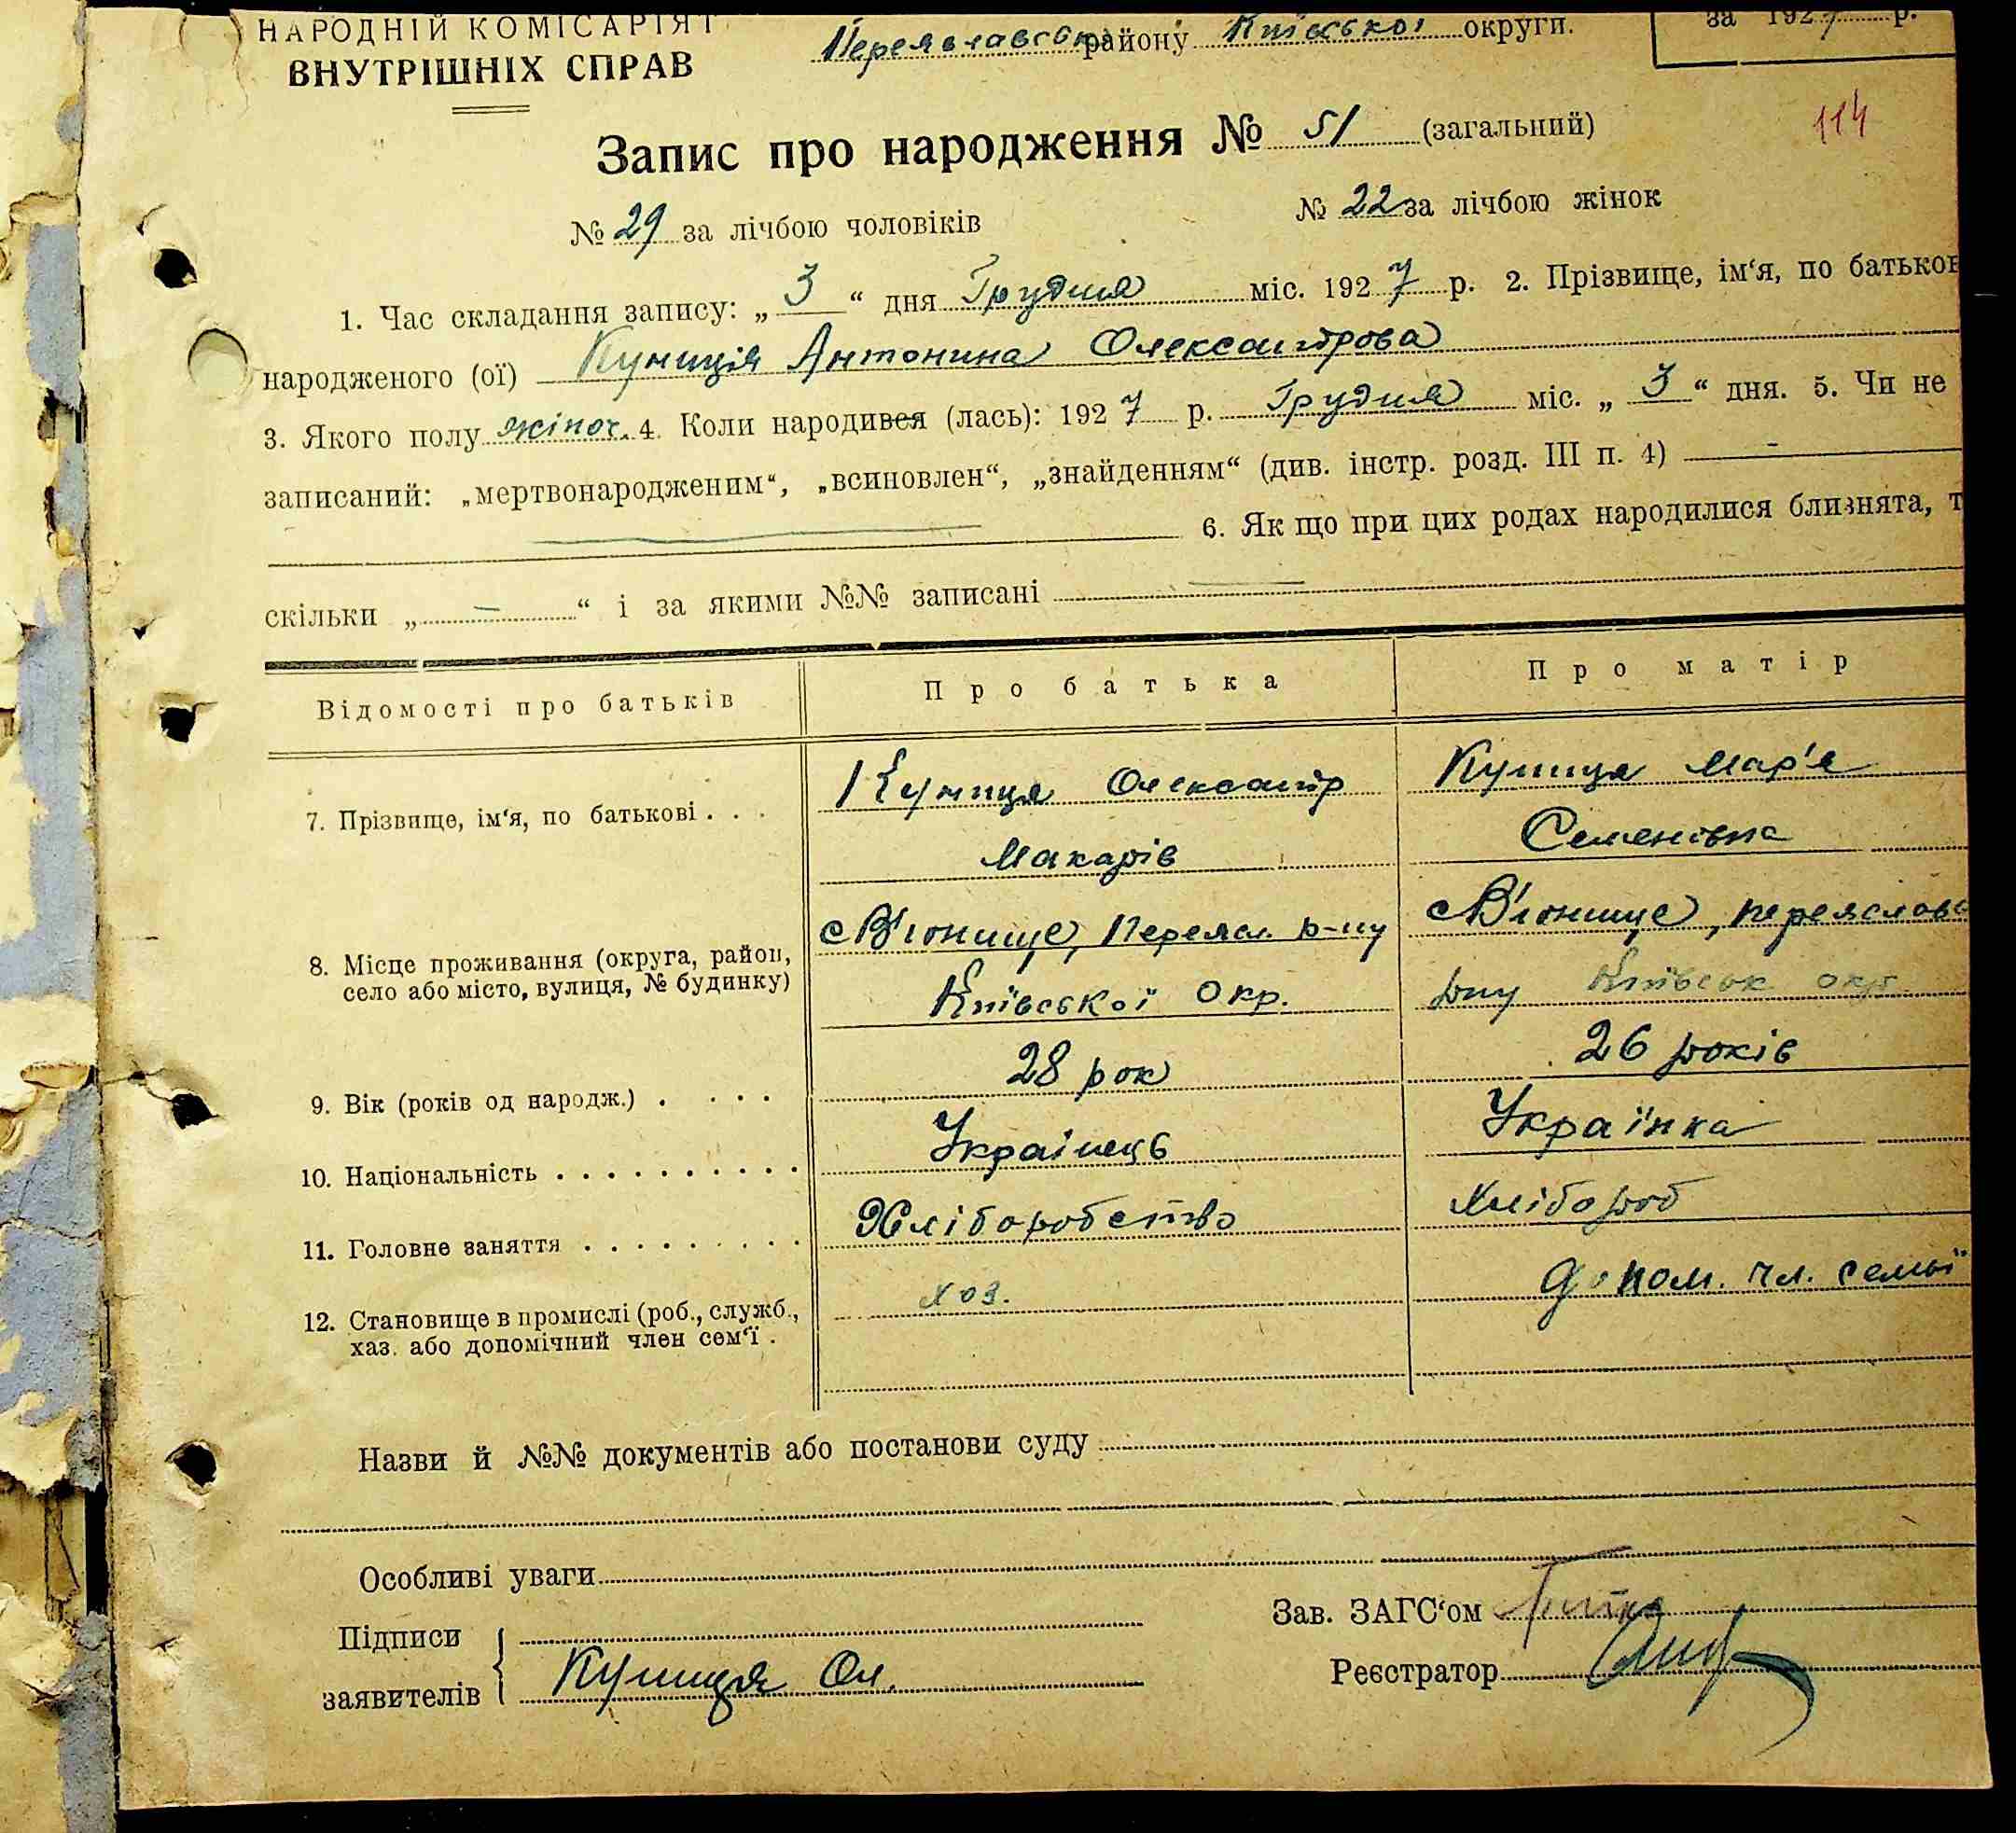 НАРОДНІЙ КОМІСАРІЯТ
ВНУТРІШНІХ СПРАВ
Переяславськ району Київської округи.
за 1927 р.
114
Запис про народження № 51 (загальний)
№ 29 за лічбою чоловіків № 22 за лічбою жінок
1. Час складання запису: „ 3 “ дня Грудня міс. 1927 р. 2. Прізвище, ім‘я, по батьков
народженого (ої) Куниція Антонина Олександрова
3. Якого полу жіноч. 4. Коли народився (лась): 1927 р. Грудня міс. „ 3 “ дня. 5. Чи не
записаний: „мертвонародженим“, „всиновлен“, „знайденням“ (див. інстр. розд. III п. 4) -
6. Як що при цих родах народилися близнята, т
скільки „ — “ і за якими №№ записані
Відомості про батьків Про батька Про матір
7. Прізвище, ім‘я, по батькові . . . Куниця Олександр Куниця Мар'я
Макарів Семенівна
8. Місце проживання (округа, район, с В'юнище, Переясл. р-ну с В'юнище, переясловс
село або місто, вулиця, № будинку) Київської Окр. рну Київськ окр.
9. Вік (років од народж.) . . . . 28 рок 26 років
10. Національність . . . . . . . . . . Українець Українка
11. Головне заняття . . . . . . . . . Хліборобство Хлібороб
12. Становище в промислі (роб., служб., хоз. допом. чл. семьї
хаз. або допомічний член сем‘ї .
Назви й №№ документів або постанови суду
Особливі уваги
Підписи Зав. ЗАГС‘ом
заявителів Куниця Ол. Реєстратор